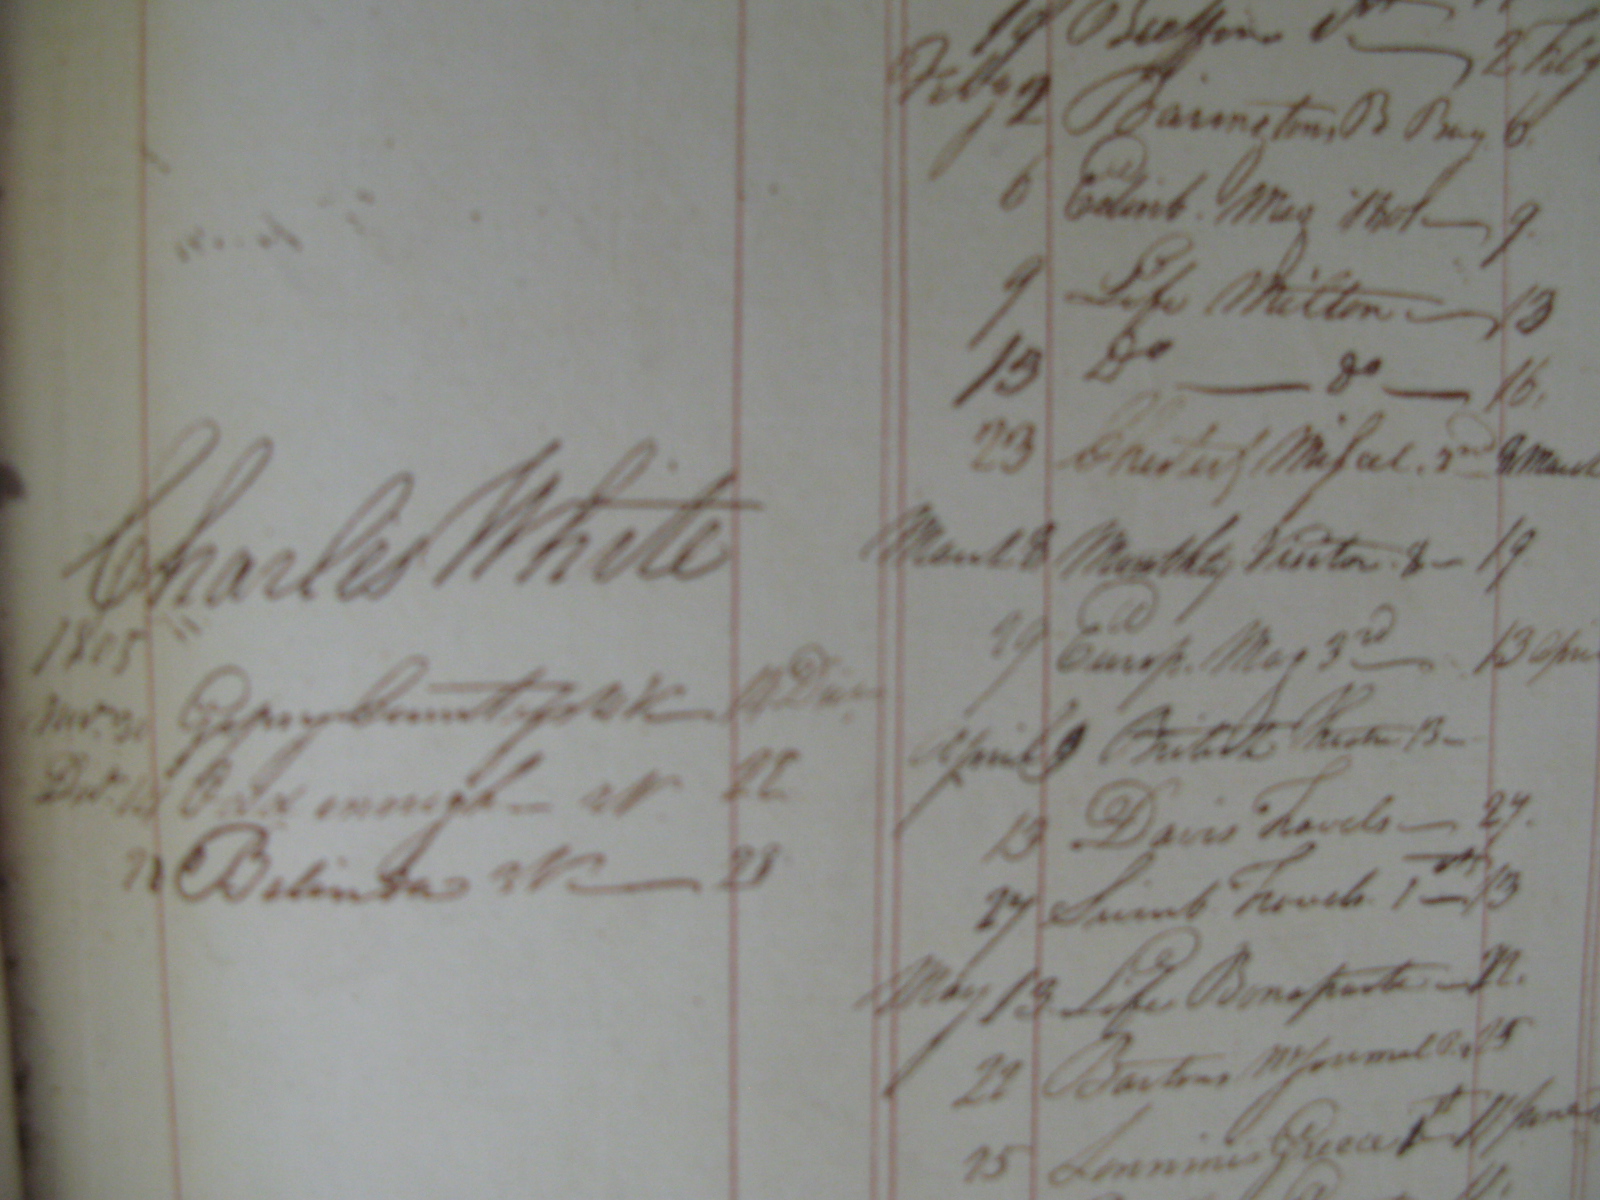 Charles White
1805
Novr. 30 Gipsy Countess 2d V 12 Decr.
Decr. 12 Odd enough 2 V 22
22 Belinda 2 V 28
19 Buffon 2 Feby
Feby 2 Barringtons B Bay 6.
6 Edinb. Mag 1801 9
9 Life Milton 13
13 Do do 16.
23 Chesterf Miscel. 2nd March
March 8 Monthly Visitor 8 19
29 Europ. Mag 3rd 13 April
April 9 British Theatre 13
13 Davis Travels 27.
27 Travels 1 13
May 13 Life Bonaparte 22.
22 Bartons Journal 25
25 Greece 1st 11 June